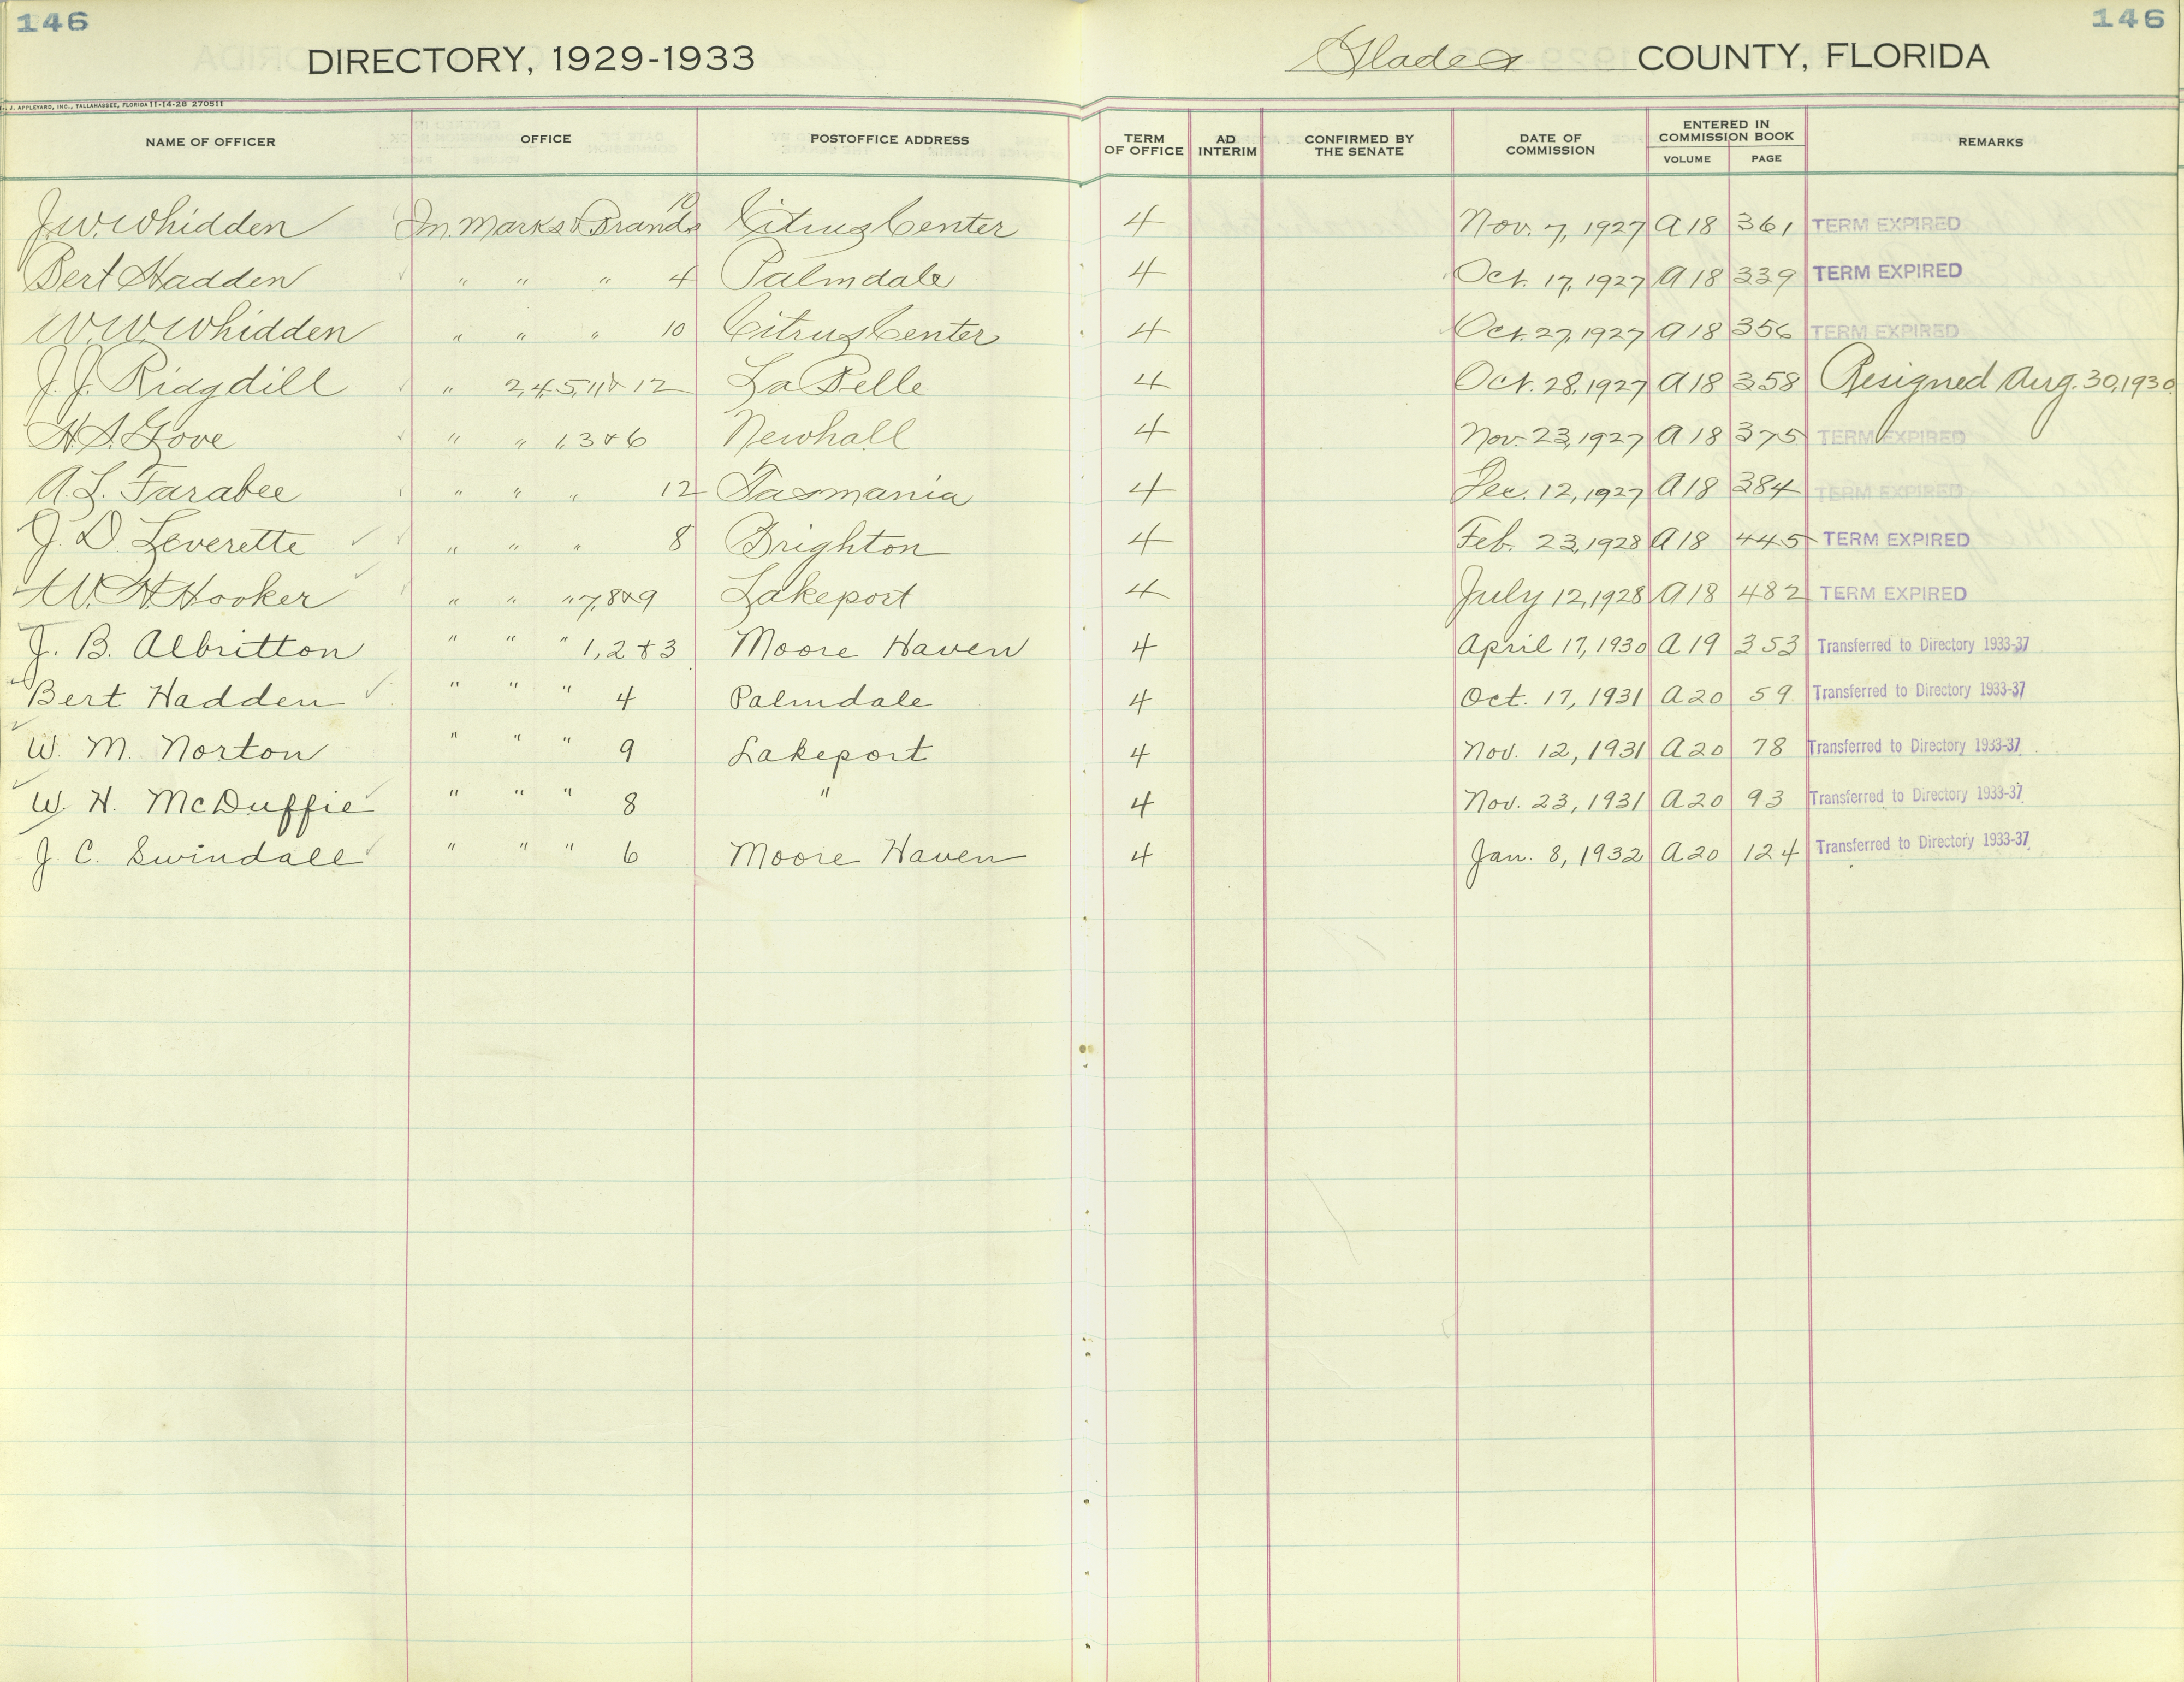 146 146
DIRECTORY, 1929-1933 Glades COUNTY, FLORIDA
J. APPLEYARD, INC., TALLAHASSEE, FLORIDA 11-14-28 270511
NAME OF OFFICER OFFICE POSTOFFICE ADDRESS TERM OF OFFICE AD INTERIM CONFIRMED BY THE SENATE DATE OF COMMISSION ENTERED IN COMMISSION BOOK VOLUME PAGE REMARKS
J.W. Whidden In. Marks & Brands 10 Citrus Center 4 Nov. 7, 1927 A 18 361 TERM EXPIRED
Bert Hadden " " " 4 Palmdale 4 Oct. 17, 1927 A 18 339 TERM EXPIRED
W.W. Whidden " " " 10 Citrus Center 4 Oct. 27, 1927 A 18 356 TERM EXPIRED
J.J. Ridgdill " 2,4,5,11 & 12 La Belle 4 Oct. 28, 1927 A 18 358 Resigned Aug. 30, 1930
H.S. Gove " " " 1,3 & 6 Newhall 4 Nov. 23, 1927 A 18 375 TERM EXPIRED
A.L. Farabee " " " 12 Tasmania 4 Dec. 12, 1927 A 18 384 TERM EXPIRED
J.D. Leverette " " " 8 Brighton 4 Feb. 23, 1928 A 18 445 TERM EXPIRED
W.H. Hooker " " " 7,8 & 9 Lakeport 4 July 12, 1928 A 18 482 TERM EXPIRED
J. B. Albritton " " " 1, 2 & 3 Moore Haven 4 April 17, 1930 A 19 353 Transferred to Directory 1933-37
Bert Hadden " " " 4 Palmdale 4 Oct. 17, 1931 A 20 59 Transferred to Directory 1933-37
W. M. Norton " " " 9 Lakeport 4 Nov. 12, 1931 A 20 78 Transferred to Directory 1933-37
W. H. McDuffie " " " 8 " 4 Nov. 23, 1931 A 20 93 Transferred to Directory 1933-37
J. C. Swindall " " " 6 Moore Haven 4 Jan. 8, 1932 A 20 124 Transferred to Directory 1933-37